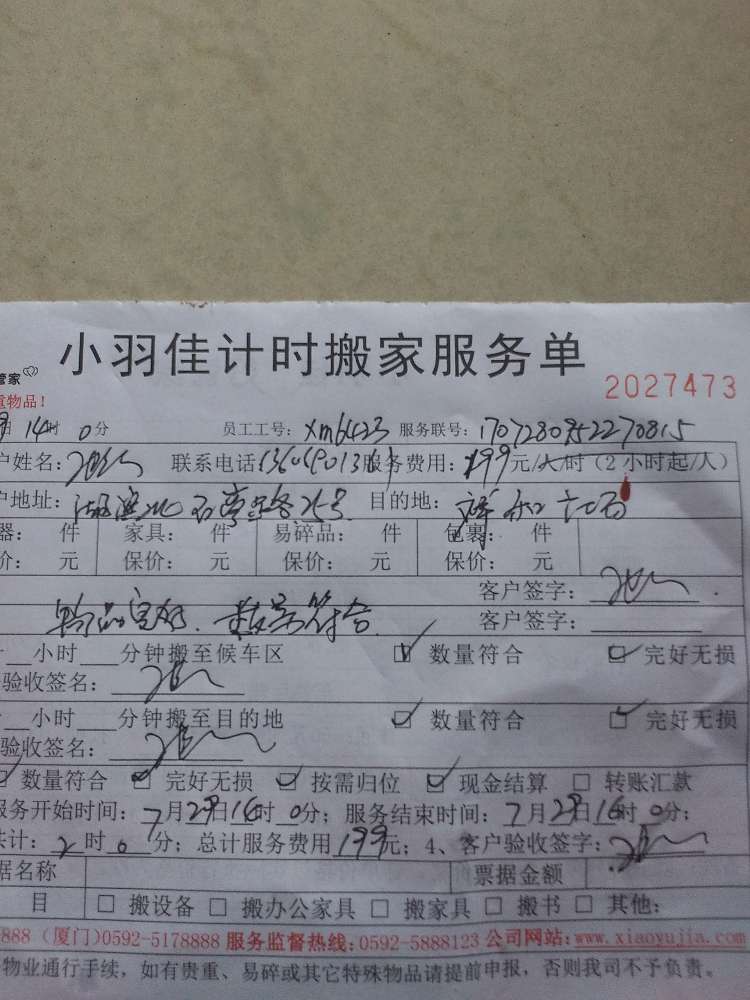 小羽佳计时搬家服务单
管家
重物品!
2027473
14时 0分 员工工号: xm6523 服务联号: 1707280952270815
户姓名: 联系电话 服务费用: 199元/人/时 (2小时起/人)
户地址: 湖滨北 目的地: 祥和
器: 件 家具: 件 易碎品: 件 包裹: 件
价: 元 保价: 元 保价: 元 保价: 元
客户签字:
物品完好、数量符合 客户签字:
小时 分钟搬至候车区 ☑ 数量符合 ☑ 完好无损
验收签名:
小时 分钟搬至目的地 ☑ 数量符合 ☑ 完好无损
验收签名:
☑ 数量符合 ☑ 完好无损 ☑ 按需归位 ☑ 现金结算 □ 转账汇款
服务开始时间: 7月29日14时 0分; 服务结束时间: 7月29日16时 0分;
共计: 2时 0分; 总计服务费用 199元; 4、客户验收签字:
据名称 票据金额
目 □ 搬设备 □ 搬办公家具 □ 搬家具 □ 搬书 □ 其他:
888 (厦门)0592-5178888 服务监督热线:0592-5888123 公司网站:www.xiaoyujia.com
物业通行手续, 如有贵重、易碎或其它特殊物品请提前申报, 否则我司不予负责。